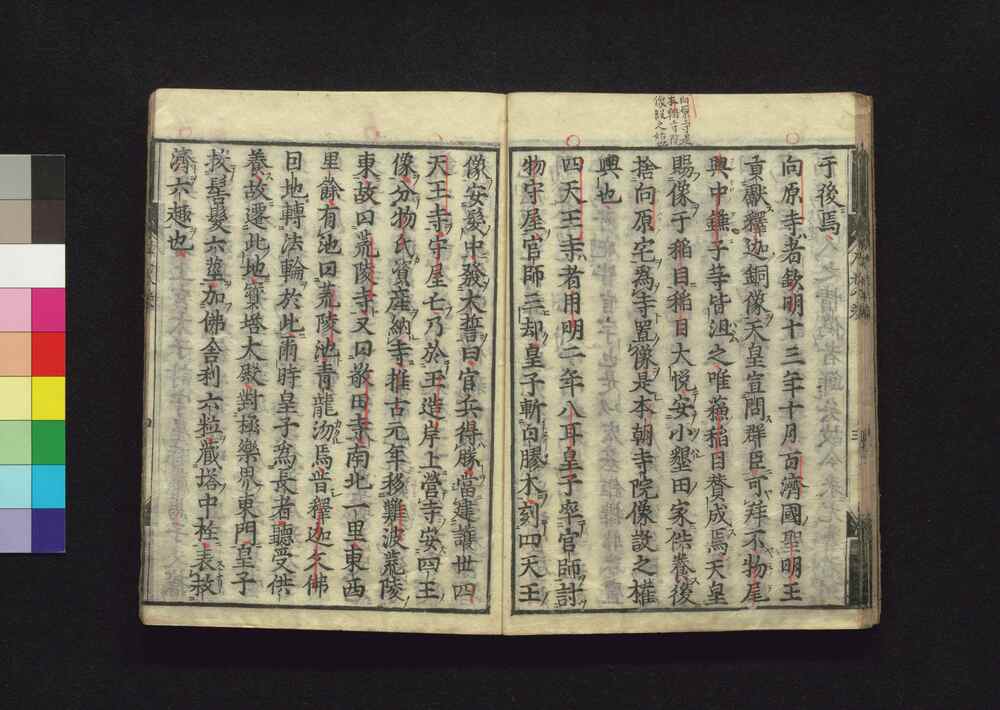 于後焉
向原寺者欽明十三年十月百濟國聖明王
貢獻釋迦銅像天皇宣問群臣可拜不物尾
興中鎌子等皆沮之唯蘓稻目賛成焉天皇
賜像于稻目稻目大悅安小墾田家供養後
捨向原宅為寺置像是本朝寺院像設之權
輿也
四天王寺者用明二年八耳皇子率官師討
物守屋官師三却皇子斬白膠木刻四天王
像安髮中發大誓曰官兵得勝當建護世四
天王寺守屋亡乃於玉造岸上營寺安四王
像分物氏資產納寺推古元年移難波荒陵
東故曰荒陵寺又曰敬田寺南北一里東西
里餘有池曰荒陵池青龍沕焉昔釋迦文佛
曰地轉法輪於此爾時皇子為長者聽受供
養故遷此地寶塔大殿對極樂界東門皇子
挾髻髮六莖加佛舍利六粒藏塔中柱表救
濟六趣也